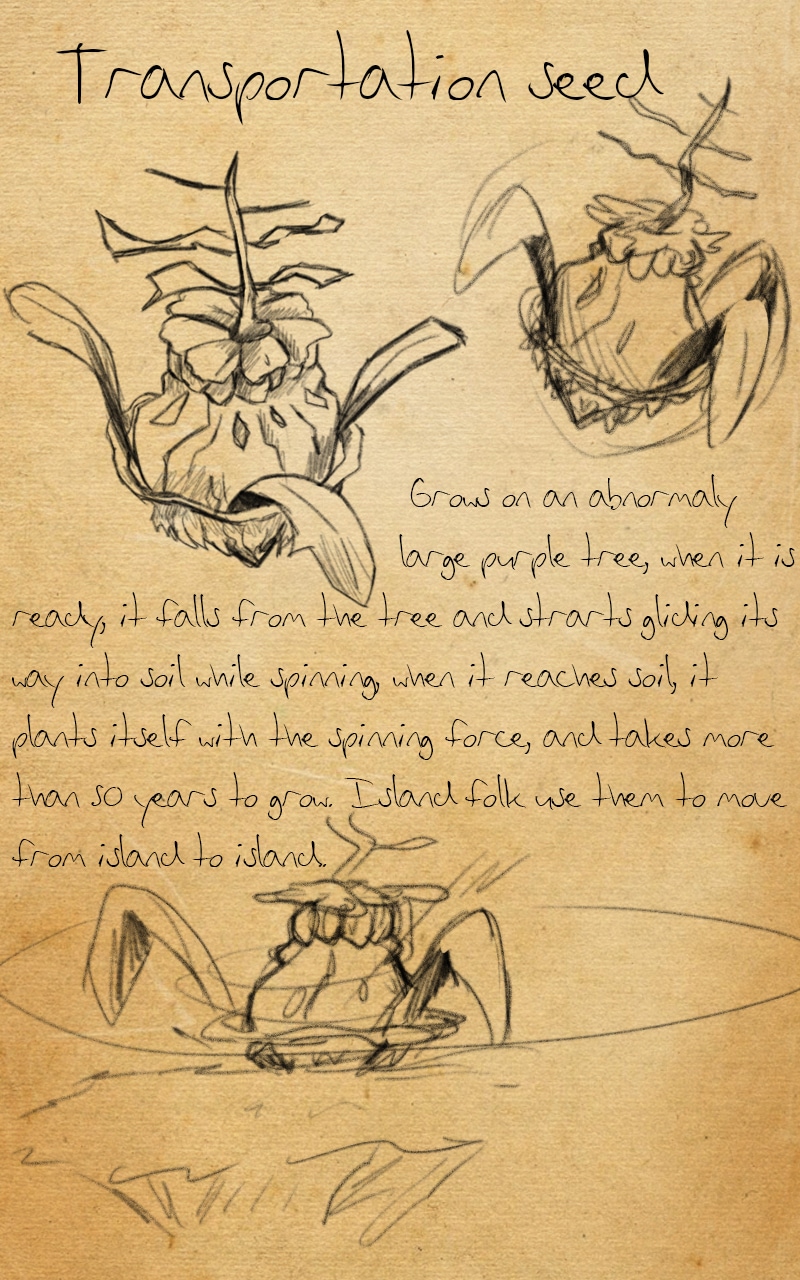 Transportation seed
Grows on an abnormaly
large purple tree, when it is
ready, it falls from the tree and strarts gliding its
way into soil while spinning, when it reaches soil, it
plants itself with the spinning force, and takes more
than 50 years to grow. Island folk use them to move
from island to island.